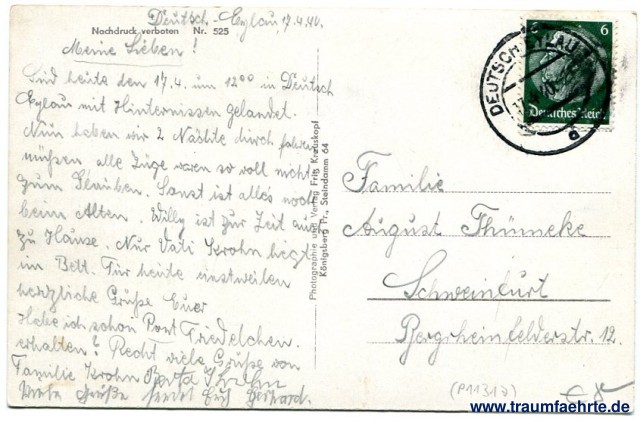 Deutsch-Eylau, 17.4.40.
Nachdruck verboten Nr. 525
Meine Lieben!
Sind heute den 17.4. um 12⁰⁰ in Deutsch
Eylau mit Hinternissen gelandet.
Nun haben wir 2 Nächte durch fahren
mühsen alle Züge waren so voll nicht
zum Glauben. Sonst ist alles noch
beim Alten. Willy ist zur Zeit auch
zu Hause. Nur Vati Krohn liegt
im Bett. Für heute einstweilen
herzliche Grüße Euer
Friedelchen.
Habe ich schon Post
erhalten? Recht viele Grüße von
Familie Krohn
Viele Grüße sendet Euch Gerhard.
Photographie und Verlag Fritz Krauskopf
Königsberg Pr., Steindamm 64
6
Deutsches Reich
DEUTSCH EYLAU
Familie
August Thünneke
Schweinfurt
Bergrheinfelderstr. 12.
(P11317)
www.traumfaehrte.de